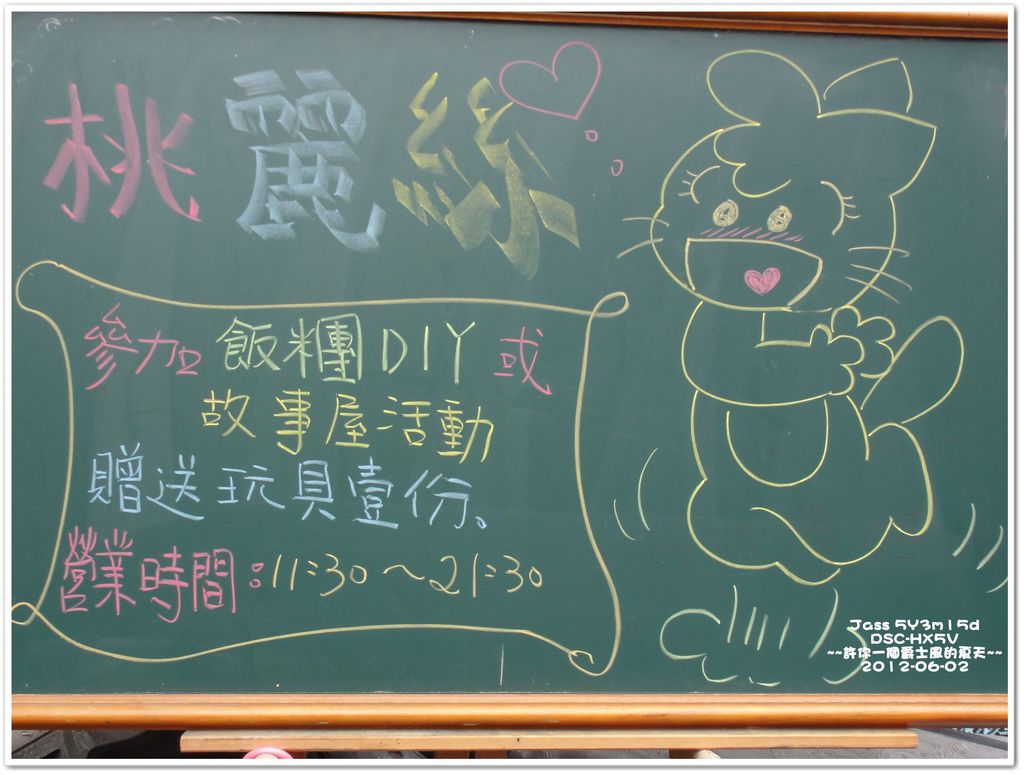 桃麗絲
參加飯糰DIY或
故事屋活動
贈送玩具壹份。
營業時間:11:30~21:30
Jass 5Y3m15d
DSC-HX5V
~~許你一個爵士風的夏天~~
2012-06-02